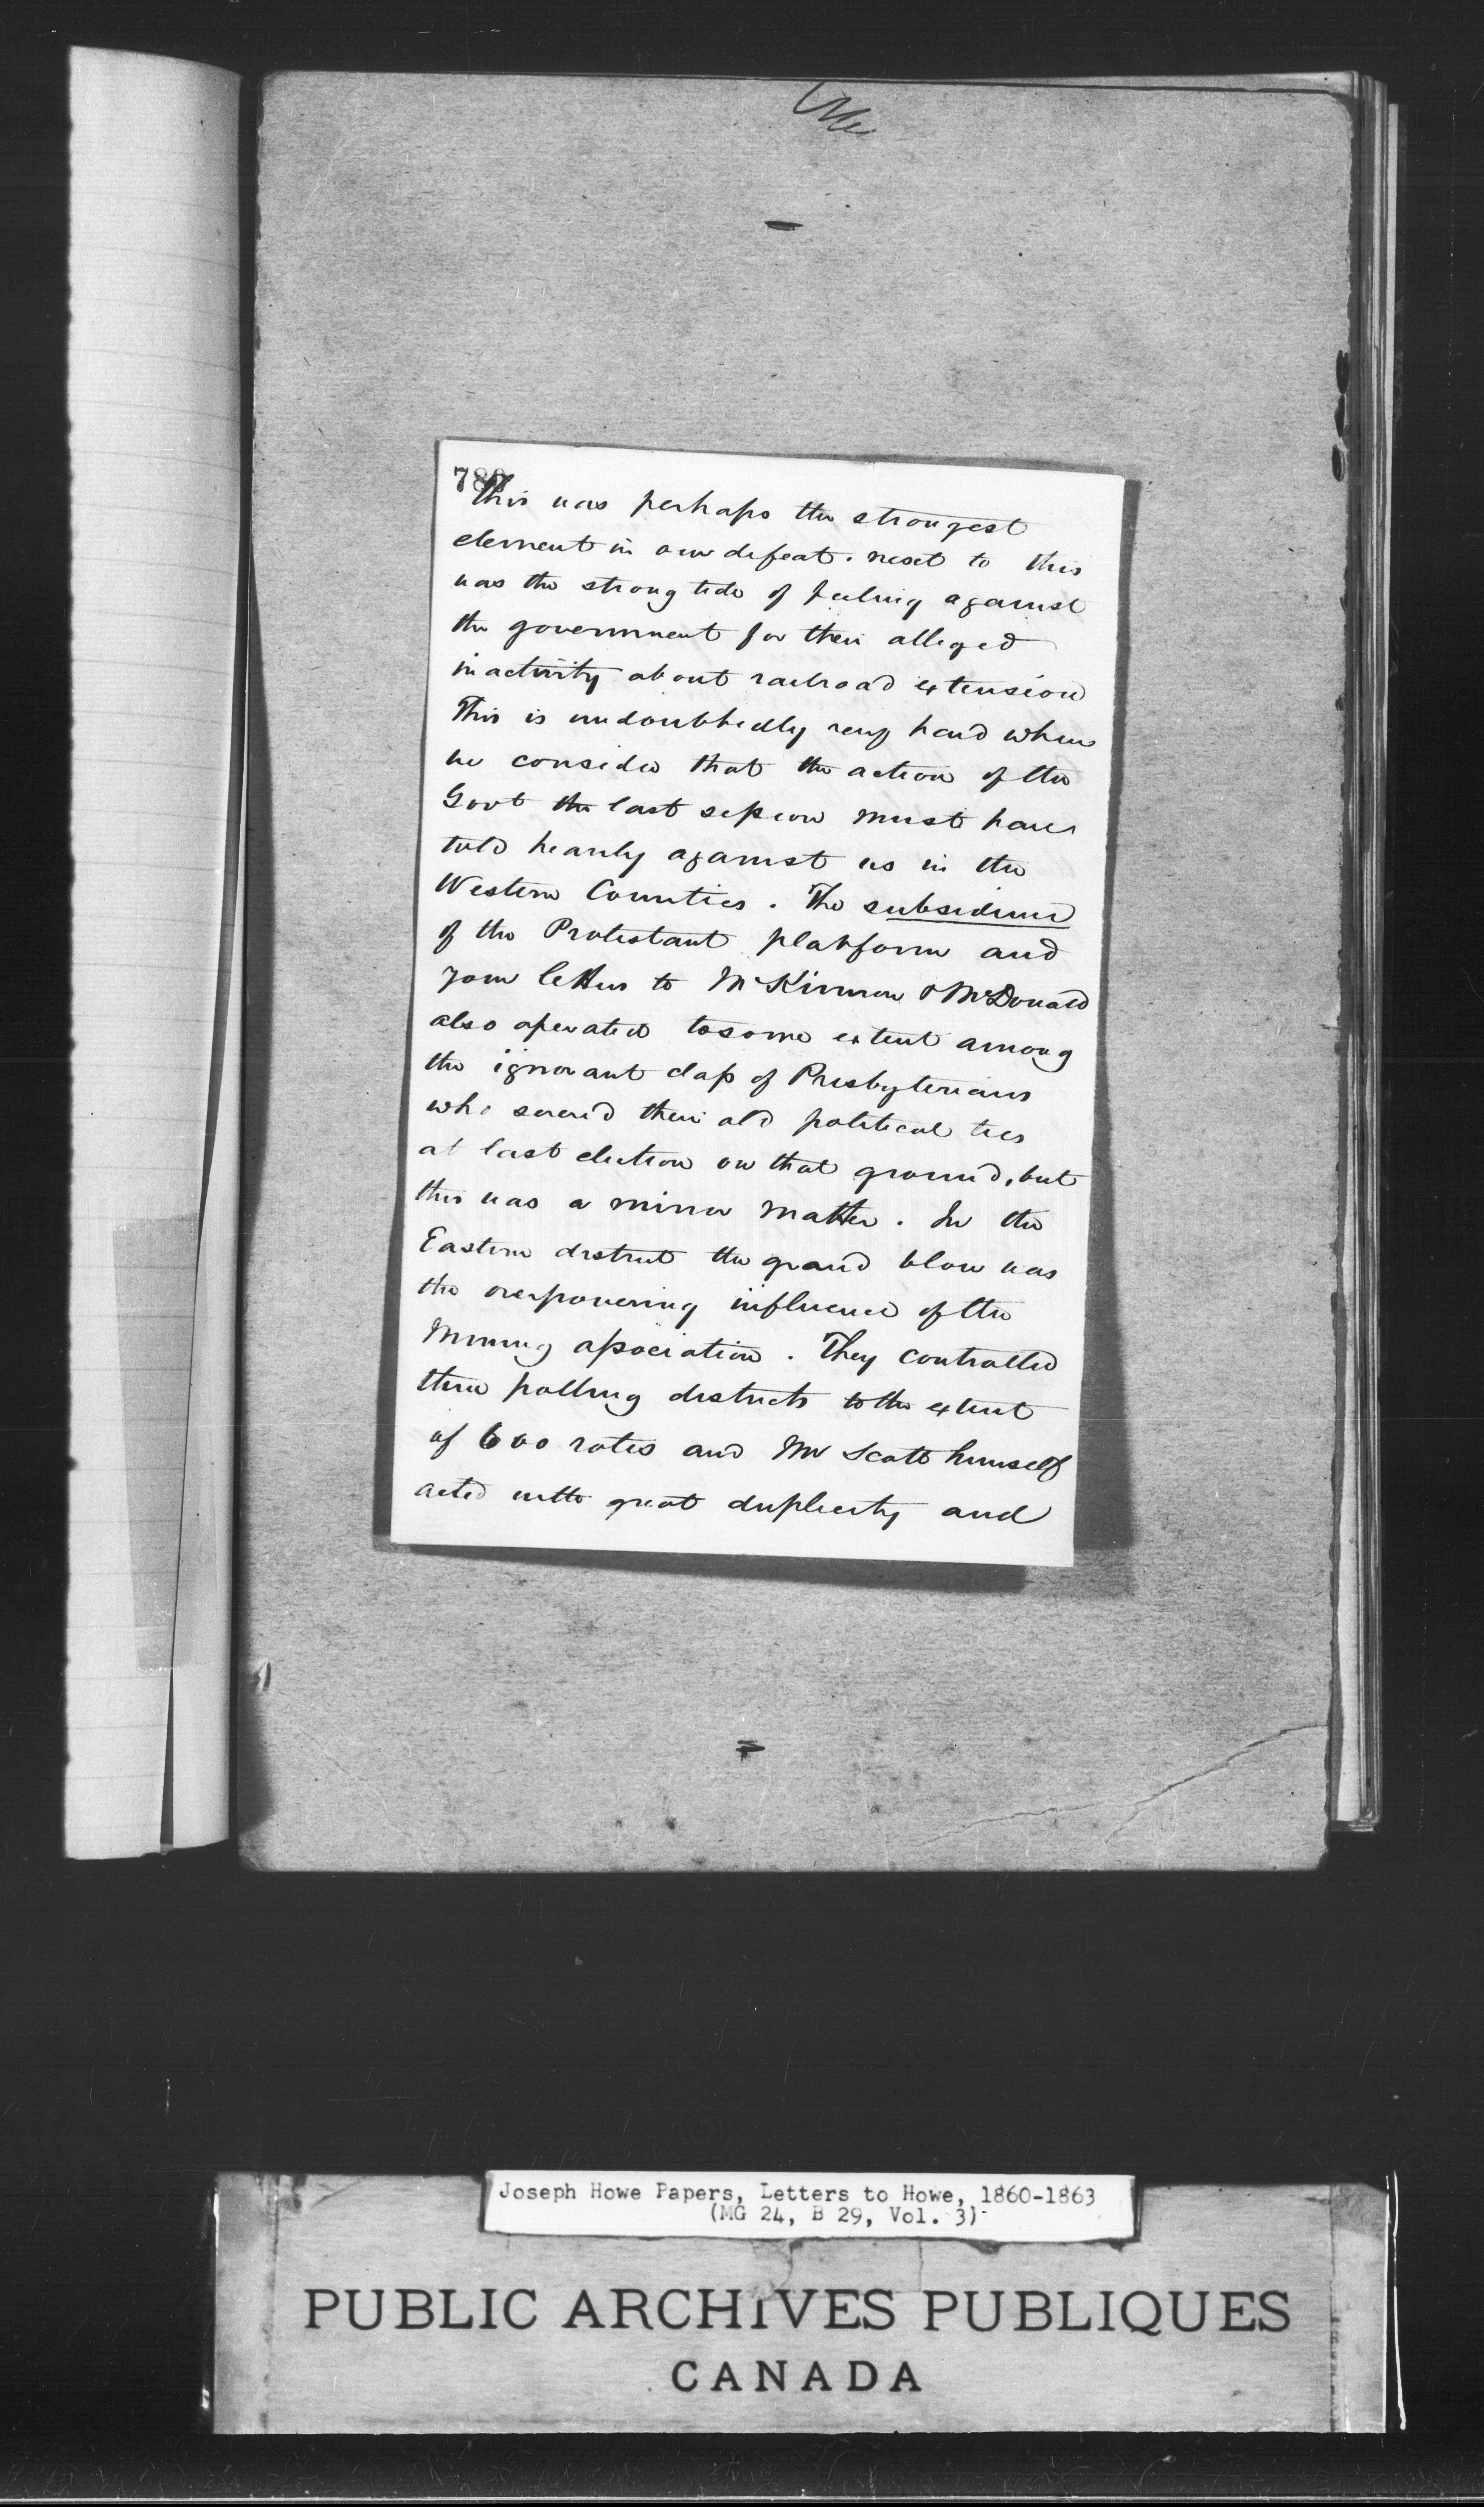 This was perhaps the strongest
element in our defeat. next to this
was the strong tide of feeling against
the government for their alleged
inactivity about railroad extension
This is undoubtedly very hard when
we consider that the action of the
Govt the last session must have
told heavily against us in the
Western Counties. The subsidence
of the Protestant platform and
your letters to McKinnon & McDonald
also operated to some extent among
the ignorant class of Presbyterians
who severed their old political ties
at last election on that ground, but
this was a minor matter. In the
Eastern district the grand blow was
the overpowering influence of the
Mining association. They controlled
three polling districts to the extent
of 600 votes and Mr Scott himself
acted with great duplicity and
Joseph Howe Papers, Letters to Howe, 1860-1863
(MG 24, B 29, Vol. 3)
PUBLIC ARCHIVES PUBLIQUES
CANADA